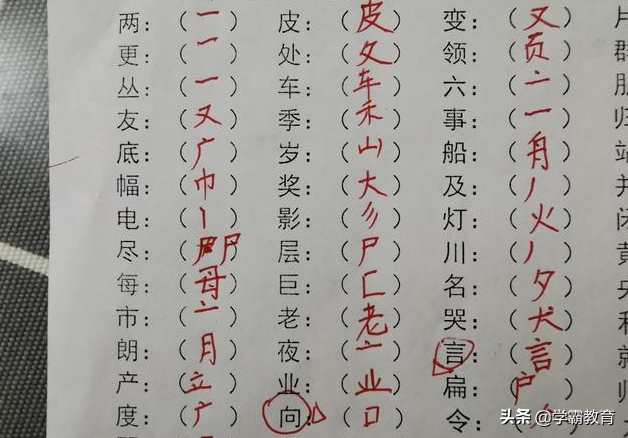 两：（一） 皮：（皮） 变：（又） 片
更：（一） 处：（夂） 领：（页） 群
丛：（一） 车：（车） 六：（亠） 
友：（又） 季：（禾） 事：（一） 归
底：（广） 岁：（山） 船：（舟） 端
幅：（巾） 奖：（大） 及：（丿） 并
电：（丨） 影：（彡） 灯：（火） 闭
尽：（尸） 层：（尸） 川：（丿） 黄
每：（母） 巨：（匚） 名：（夕） 央
市：（亠） 老：（老） 哭：（犬） 
朗：（月） 夜：（亠） 言：（言） 就
产：（立） 业：（业） 扁：（户） 
度：（广） 向：（口） 令：（
头条 @学霸教育